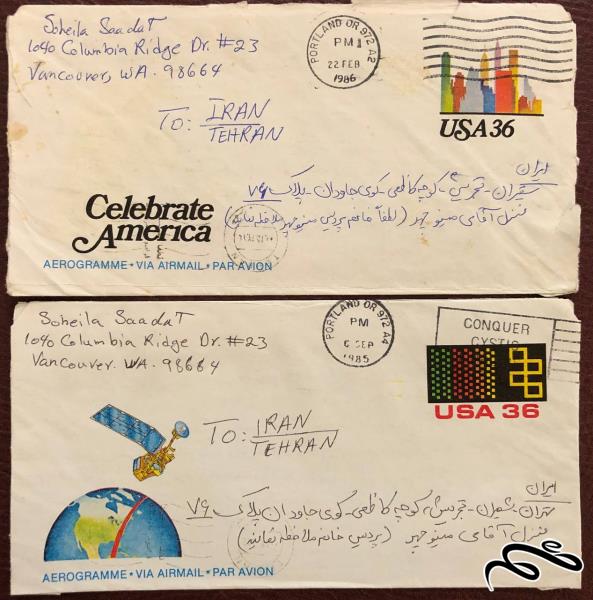 Soheila Saadat
1040 Columbia Ridge Dr. #23
Vancouver, WA. 98664
PORTLAND OR 972 A2
PM
22 FEB
1986
USA 36
TO: IRAN
TEHRAN
ایران
تجریش - کوچه کاظمی - کوی جاودان - پلاک ۷۶
منزل آقای منوچهر
Celebrate
America
AEROGRAMME • VIA AIRMAIL • PAR AVION
Soheila Saadat
1040 Columbia Ridge Dr. #23
Vancouver. WA. 98664
PORTLAND OR 972 A4
PM
6 SEP
1985
CONQUER
CYSTIC
USA 36
TO: IRAN
TEHRAN
ایران
تهران - شمیران - تجریش - کوچه کاظمی - کوی جاودان پلاک ۷۶
منزل آقای منوچهر (پردیس خانم ملاحظه نمایند)
AEROGRAMME • VIA AIRMAIL • PAR AVION